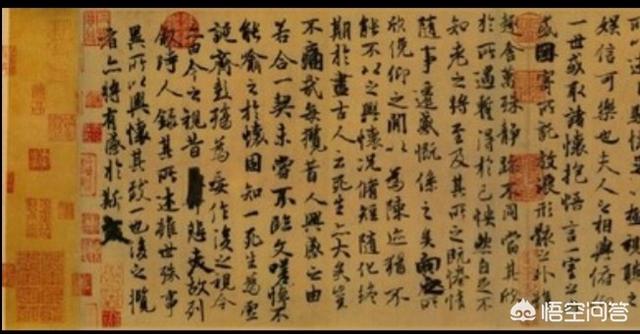 娛信可樂也夫人之相與俯
一世或取諸懷抱悟言一室之
或因寄所託放浪形骸之外雖
趣舍萬殊靜躁不同當其欣
於所遇蹔得於己怏然自足不
知老之將至及其所之既惓情
隨事遷感慨係之矣向之所
欣俛仰之閒以為陳迹猶不
能不以之興懷況脩短隨化終
期於盡古人云死生亦大矣豈
不痛哉每攬昔人興感之由
若合一契未嘗不臨文嗟悼不
能喻之於懷固知一死生為虛
誕齊彭殤為妄作後之視今
亦由今之視昔悲夫故列
敘時人錄其所述雖世殊事
異所以興懷其致一也後之攬
者亦將有感於斯文
悟空问答